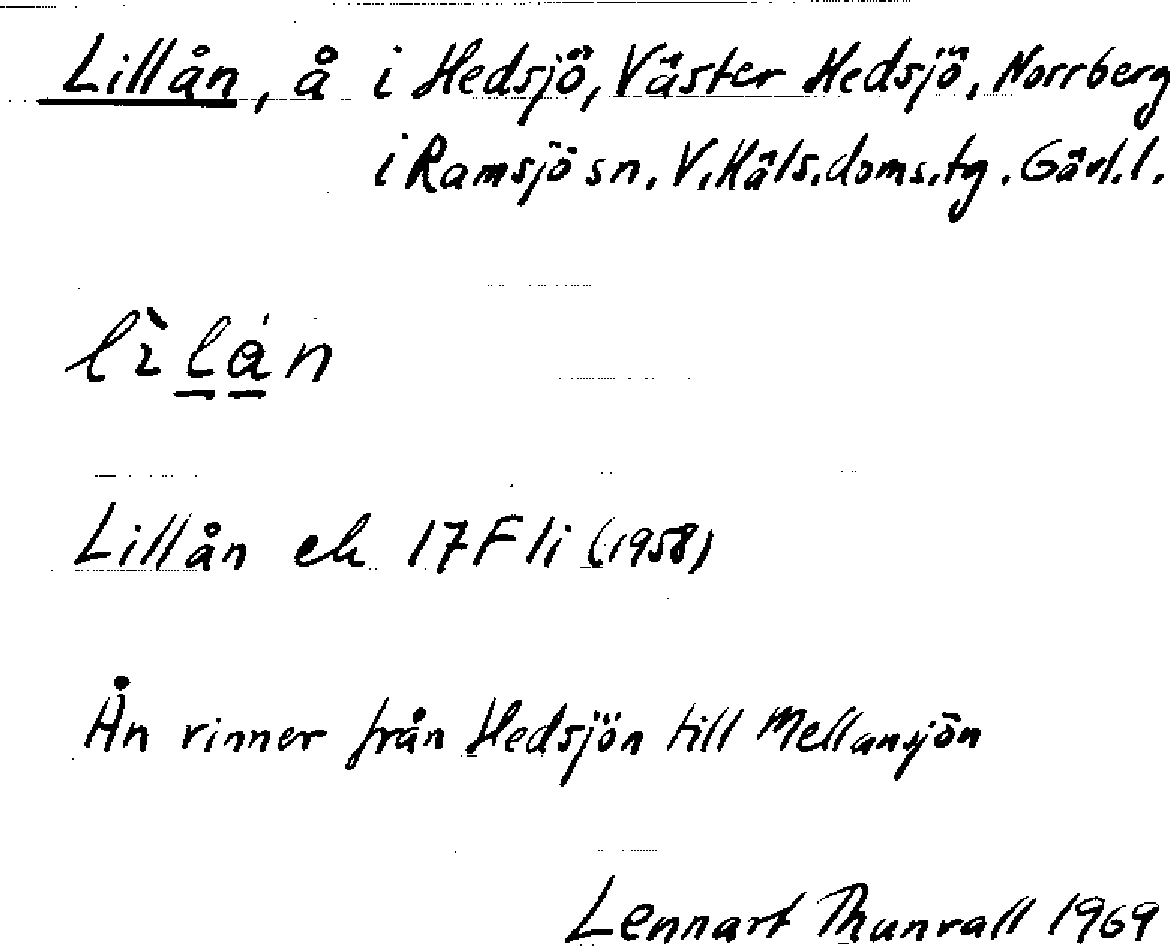 Lillån, å i Hedsjö, Väster Hedsjö, Norrberg
i Ramsjö sn. V. Häls. doms. tg. Gävl. l.
lìlån
Lillån ek 17F li (1958)
Ån rinner från Hedsjön till Mellansjön
Lennart Thunvall 1969